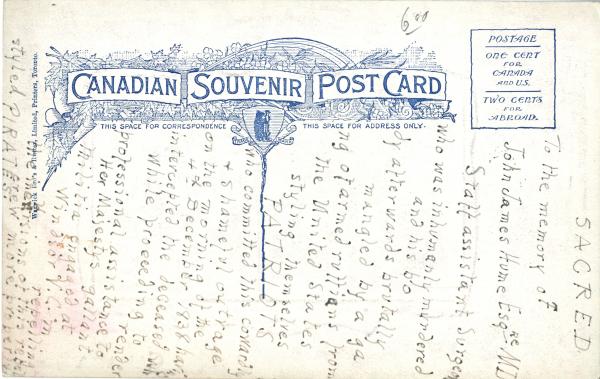 6.00
CANADIAN SOUVENIR POST CARD
THIS SPACE FOR CORRESPONDENCE
THIS SPACE FOR ADDRESS ONLY.
POSTAGE
ONE CENT
FOR
CANADA
AND U.S.
TWO CENTS
FOR
ABROAD.
Warwick Bro's & Rutter, Limited, Printers, Toronto.
SACRED
To the memory of
John James Hume Esqre MD
Staff assistant Surgeon
who was inhumanly murdered
and his bo
dy afterwards brutally
mangled by a ga
ng of armed ruffians from
the United States
styling themselves
PATRIOTS
who committed his cowardly
& shameful outrage
on the morning of the
4th December, 1838 having
intercepted the deceased
While proceeding to
render
professional assistance to
Her Majestys gallant
militia engaged at
Windsor U.C. in
repelling
the
of this
styled PIRATES
more